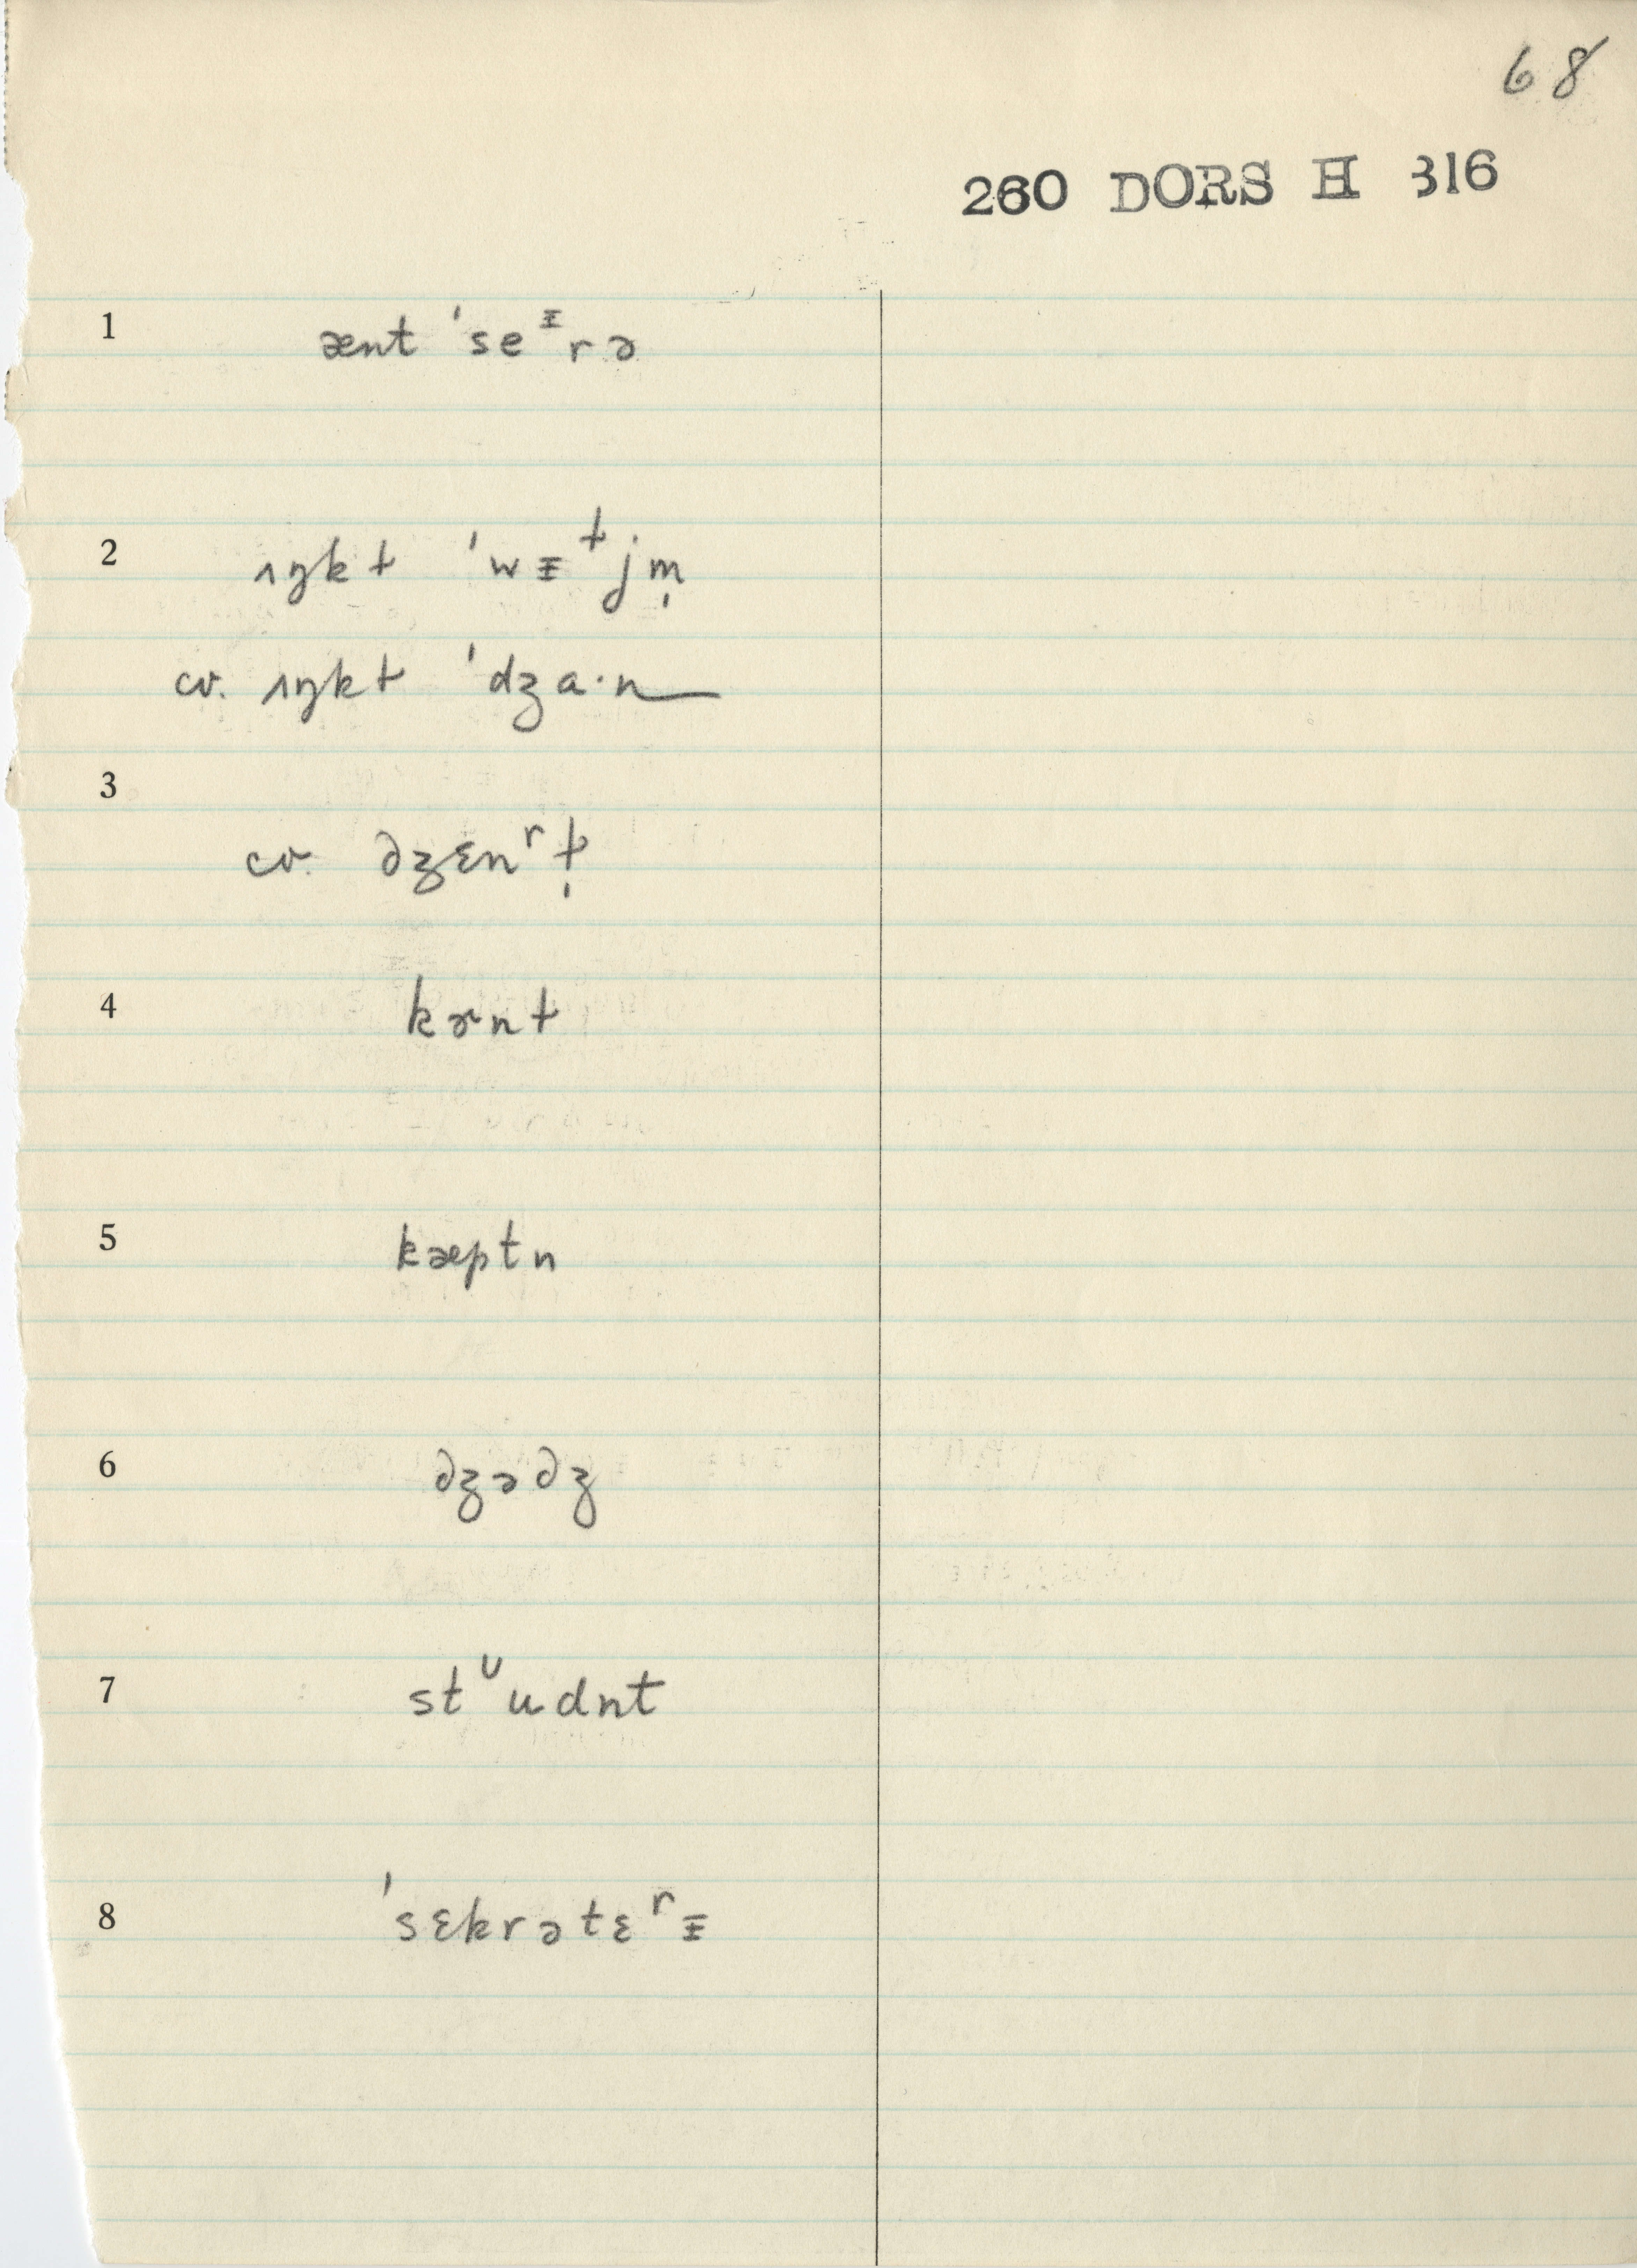 68
260 DORS H 316
1 ænt ˈseᵻrə
2 ʌŋkɫ ˈwɪɫjm̩
cv. ʌŋkɫ ˈdʒɑ·n
3
cv. dʒɛnʳɫ̩
4 kɚnɫ
5 kæptn
6 dʒədʒ
7 stᶸudnt
8 ˈsɛkrətɛʳɪ